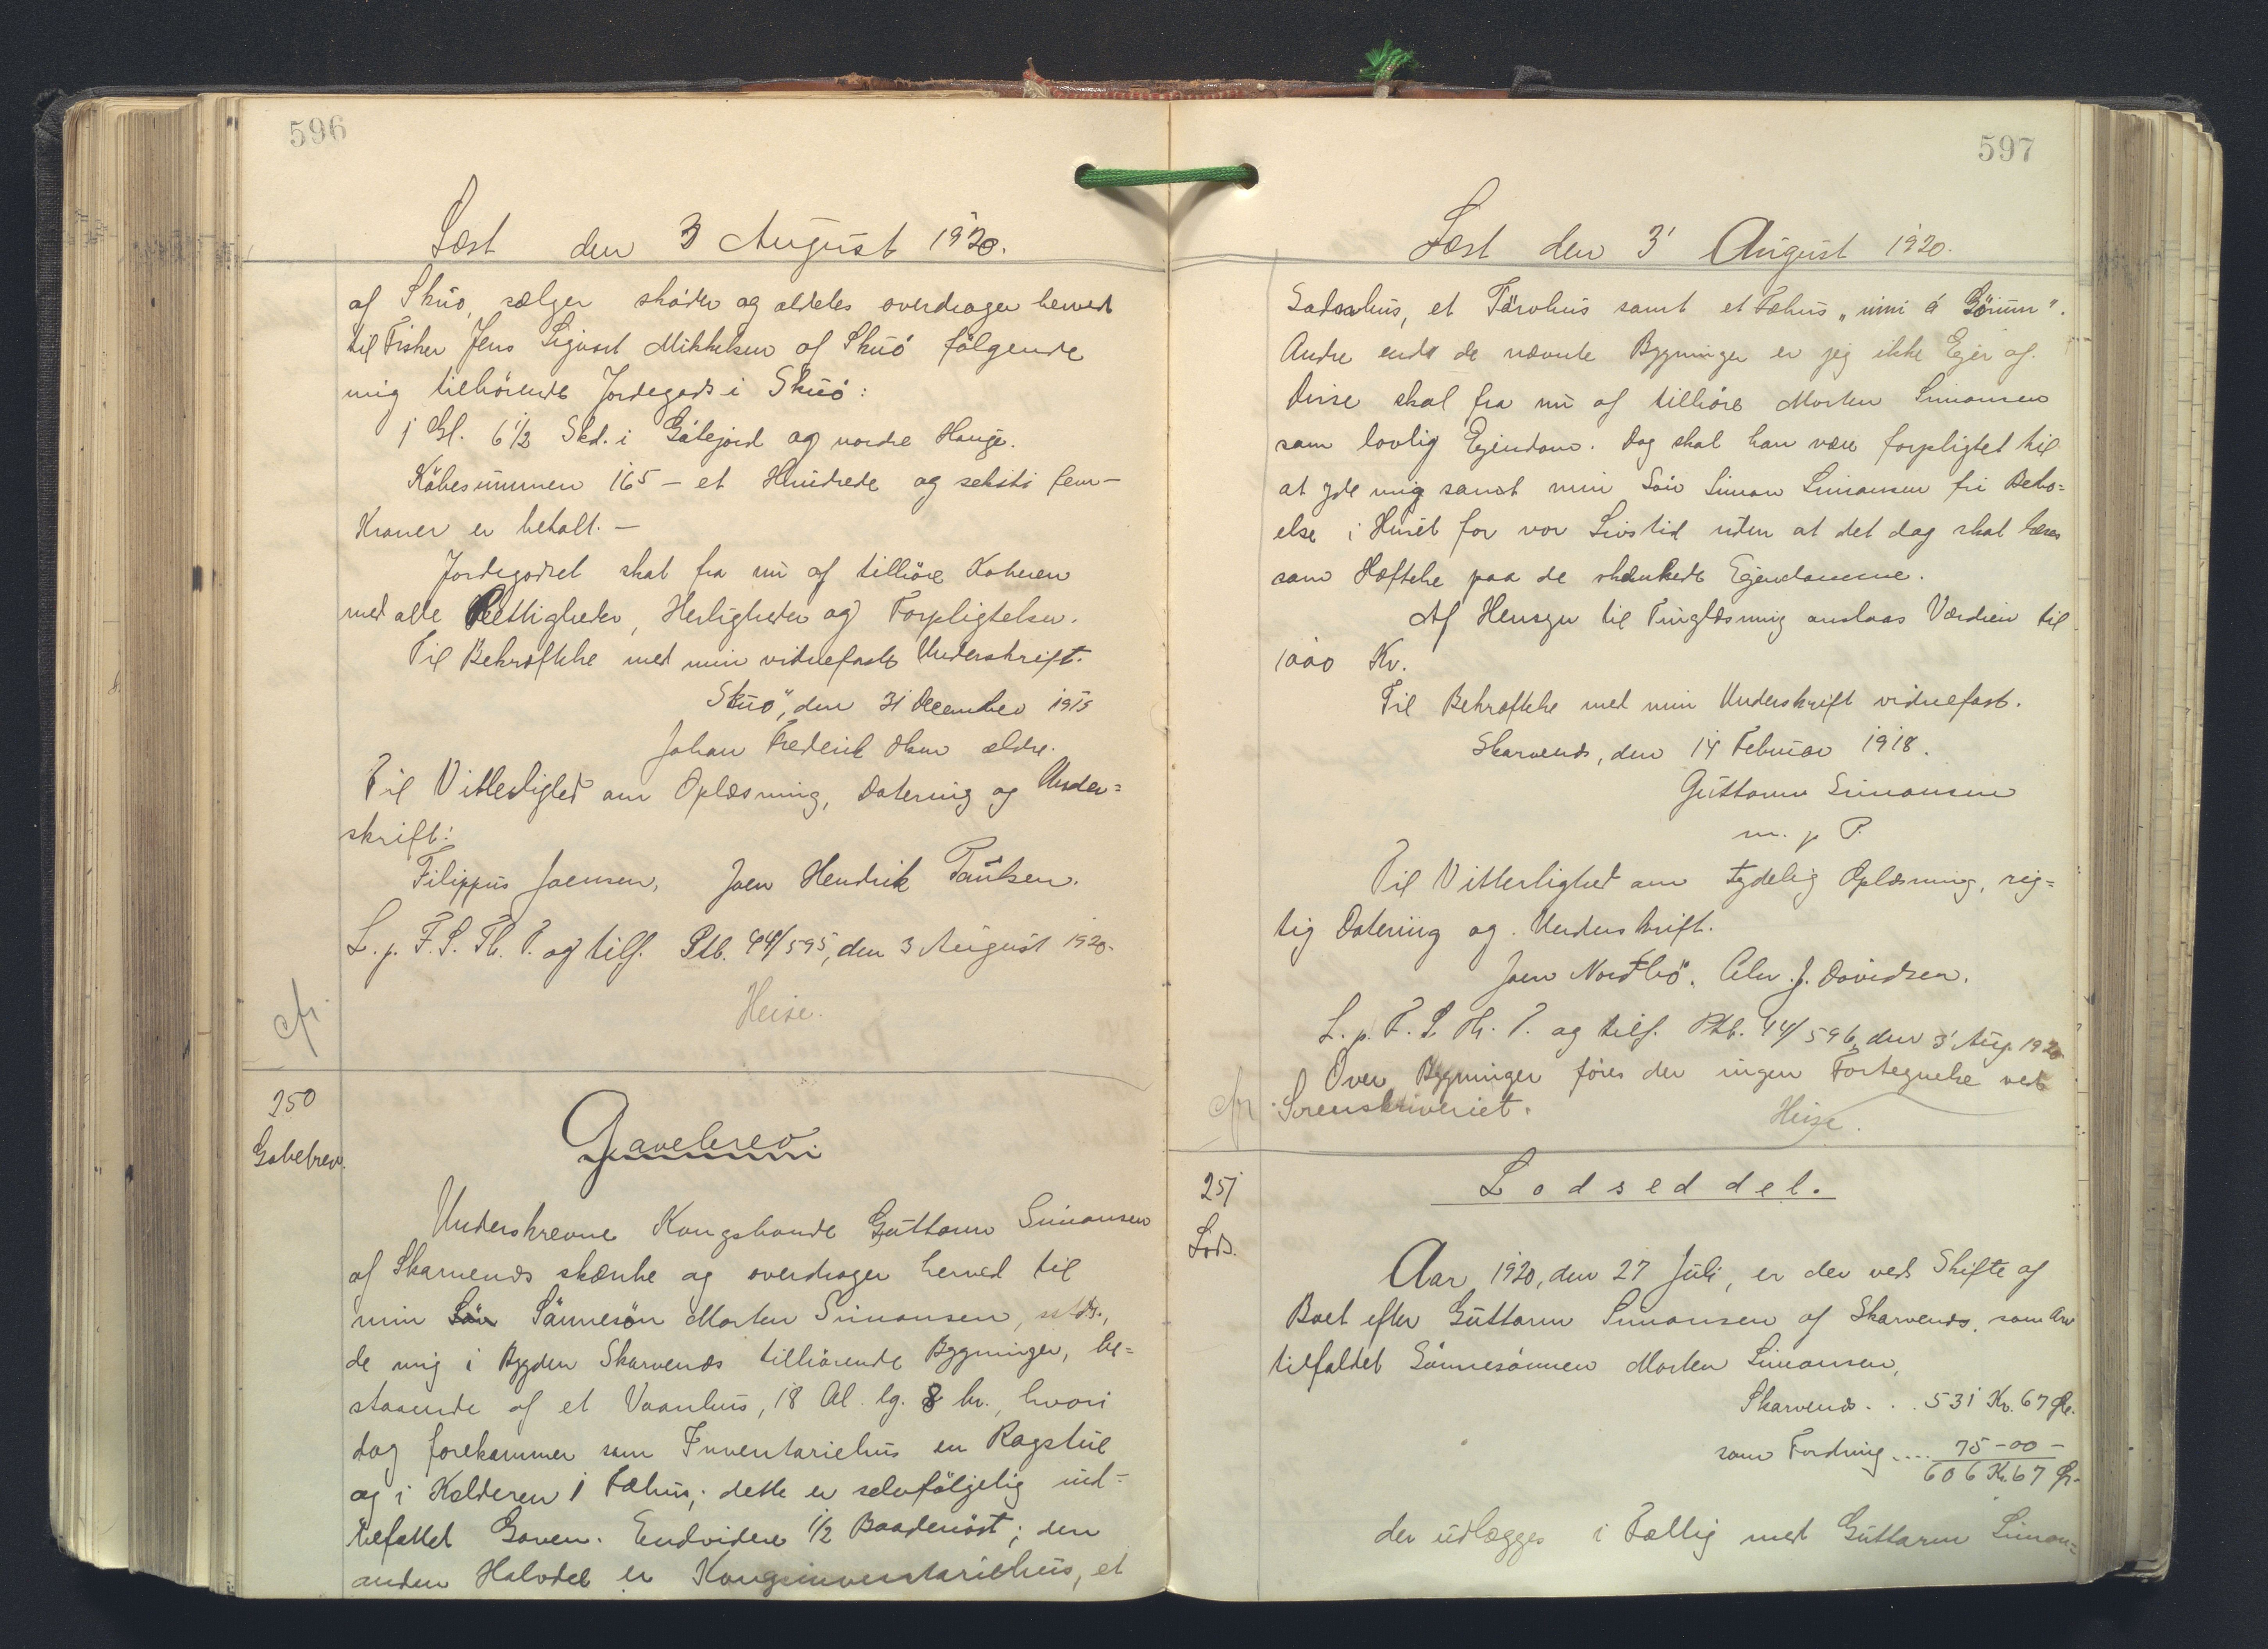 596
Læst den 3 August 1920.
af Skuö, sælger skøder og aldeles overdrager herved
til Fisker Jens Sigvart Mikkelsen af Skuö fölgende
mig tilhörende Jordegods i Skuö:
1 Gl. 6 1/2 Skd. i Gálejord og nordre Hauge.
Köbesummen 165 – et Hundrede og seksti fem –
Kroner er betalt. –
Jordegodset skal fra nu af tilhöre Köberen
med alle Rettigheder, Herligheder og Forpligtelser.
Til Bekræftelse med min vidnefaste Underskrift.
Skuö, den 31 December 1915
Johan Frederik ældre.
Til Vitterlighed om Oplæsning, Datering og Under=
skrift:
Filippus Joensen, Joen Hendrik Paulsen.
L. p. F. S. Th. P. og tilf. Ptb. 44/595, den 3 August 1920.
Heise.
cfr.
250
Gavebrev.
Gavebrev.
Underskrevne Kongsbonde Guttorm Simonsen
af Skarvenæs skænke og overdrager herved til
min Sön Sönnesön Morten Simonsen, sstds.,
de mig i Bygden Skarvenæs tilhörende Bygninger, be=
staaende af et Vaanhus, 18 Al. lg. 8 br., hvori
dog forekommer som Inventariehus en Rogstue
og i Kælderen 1 Fæhus; dette er selvfölgelig ind=
befattet Gaven. Endvidere 1/2 Baadenöst; den
anden Halvdel er Konginventariehus, et
597
Læst den 3' August 1920.
Sodnhus, et Törvhus samt et Fæhus „inni á Görum“.
Andre end de nævnte Bygninger er jeg ikke Ejer af.
Disse skal fra nu af tilhöre Morten Simonsen
som lovlig Ejendom. Dog skal han være forpligtet til
at yde mig samt min Sön Simon Simonsen fri Bebo=
else i Huset for vor Livstid uden at det dog skal læses
som Hæftelse paa de skænkede Ejendomme.
Af Hensyn til Tinglæsning anslaas Værdien til
1000 Kr.
Til Bekræftelse med min Underskrift vidnefast.
Skarvenæs, den 14 Februar 1918.
Guttorm Simonsen
m. p P.
Til Vitterlighed om tydelig Oplæsning, rig=
tig Datering og Underskrift.
Joen Nordbö. Chr. J. Davidsen.
L. p. F. S. Th. P. og tilf. Ptb. 44/596, den 3' Aug. 1920
Over Bygninger föres der ingen Fortegnelse ved
cfr. Sorenskriveriet.
Heise.
251
Lods.
Lodseddel.
Aar 1920, den 27 Juli, er der ved Skifte af
Boet efter Guttorm Simonsen af Skarvenæs, som Arv
tilfaldet Sönnesönnen Morten Simonsen,
Skarvenæs . . . 531 Kr. 67 Ør.
som Fordring .... 75 – 00 –
606 Kr. 67 Ør.
der udlægges i Fællig med Guttorm Simon=